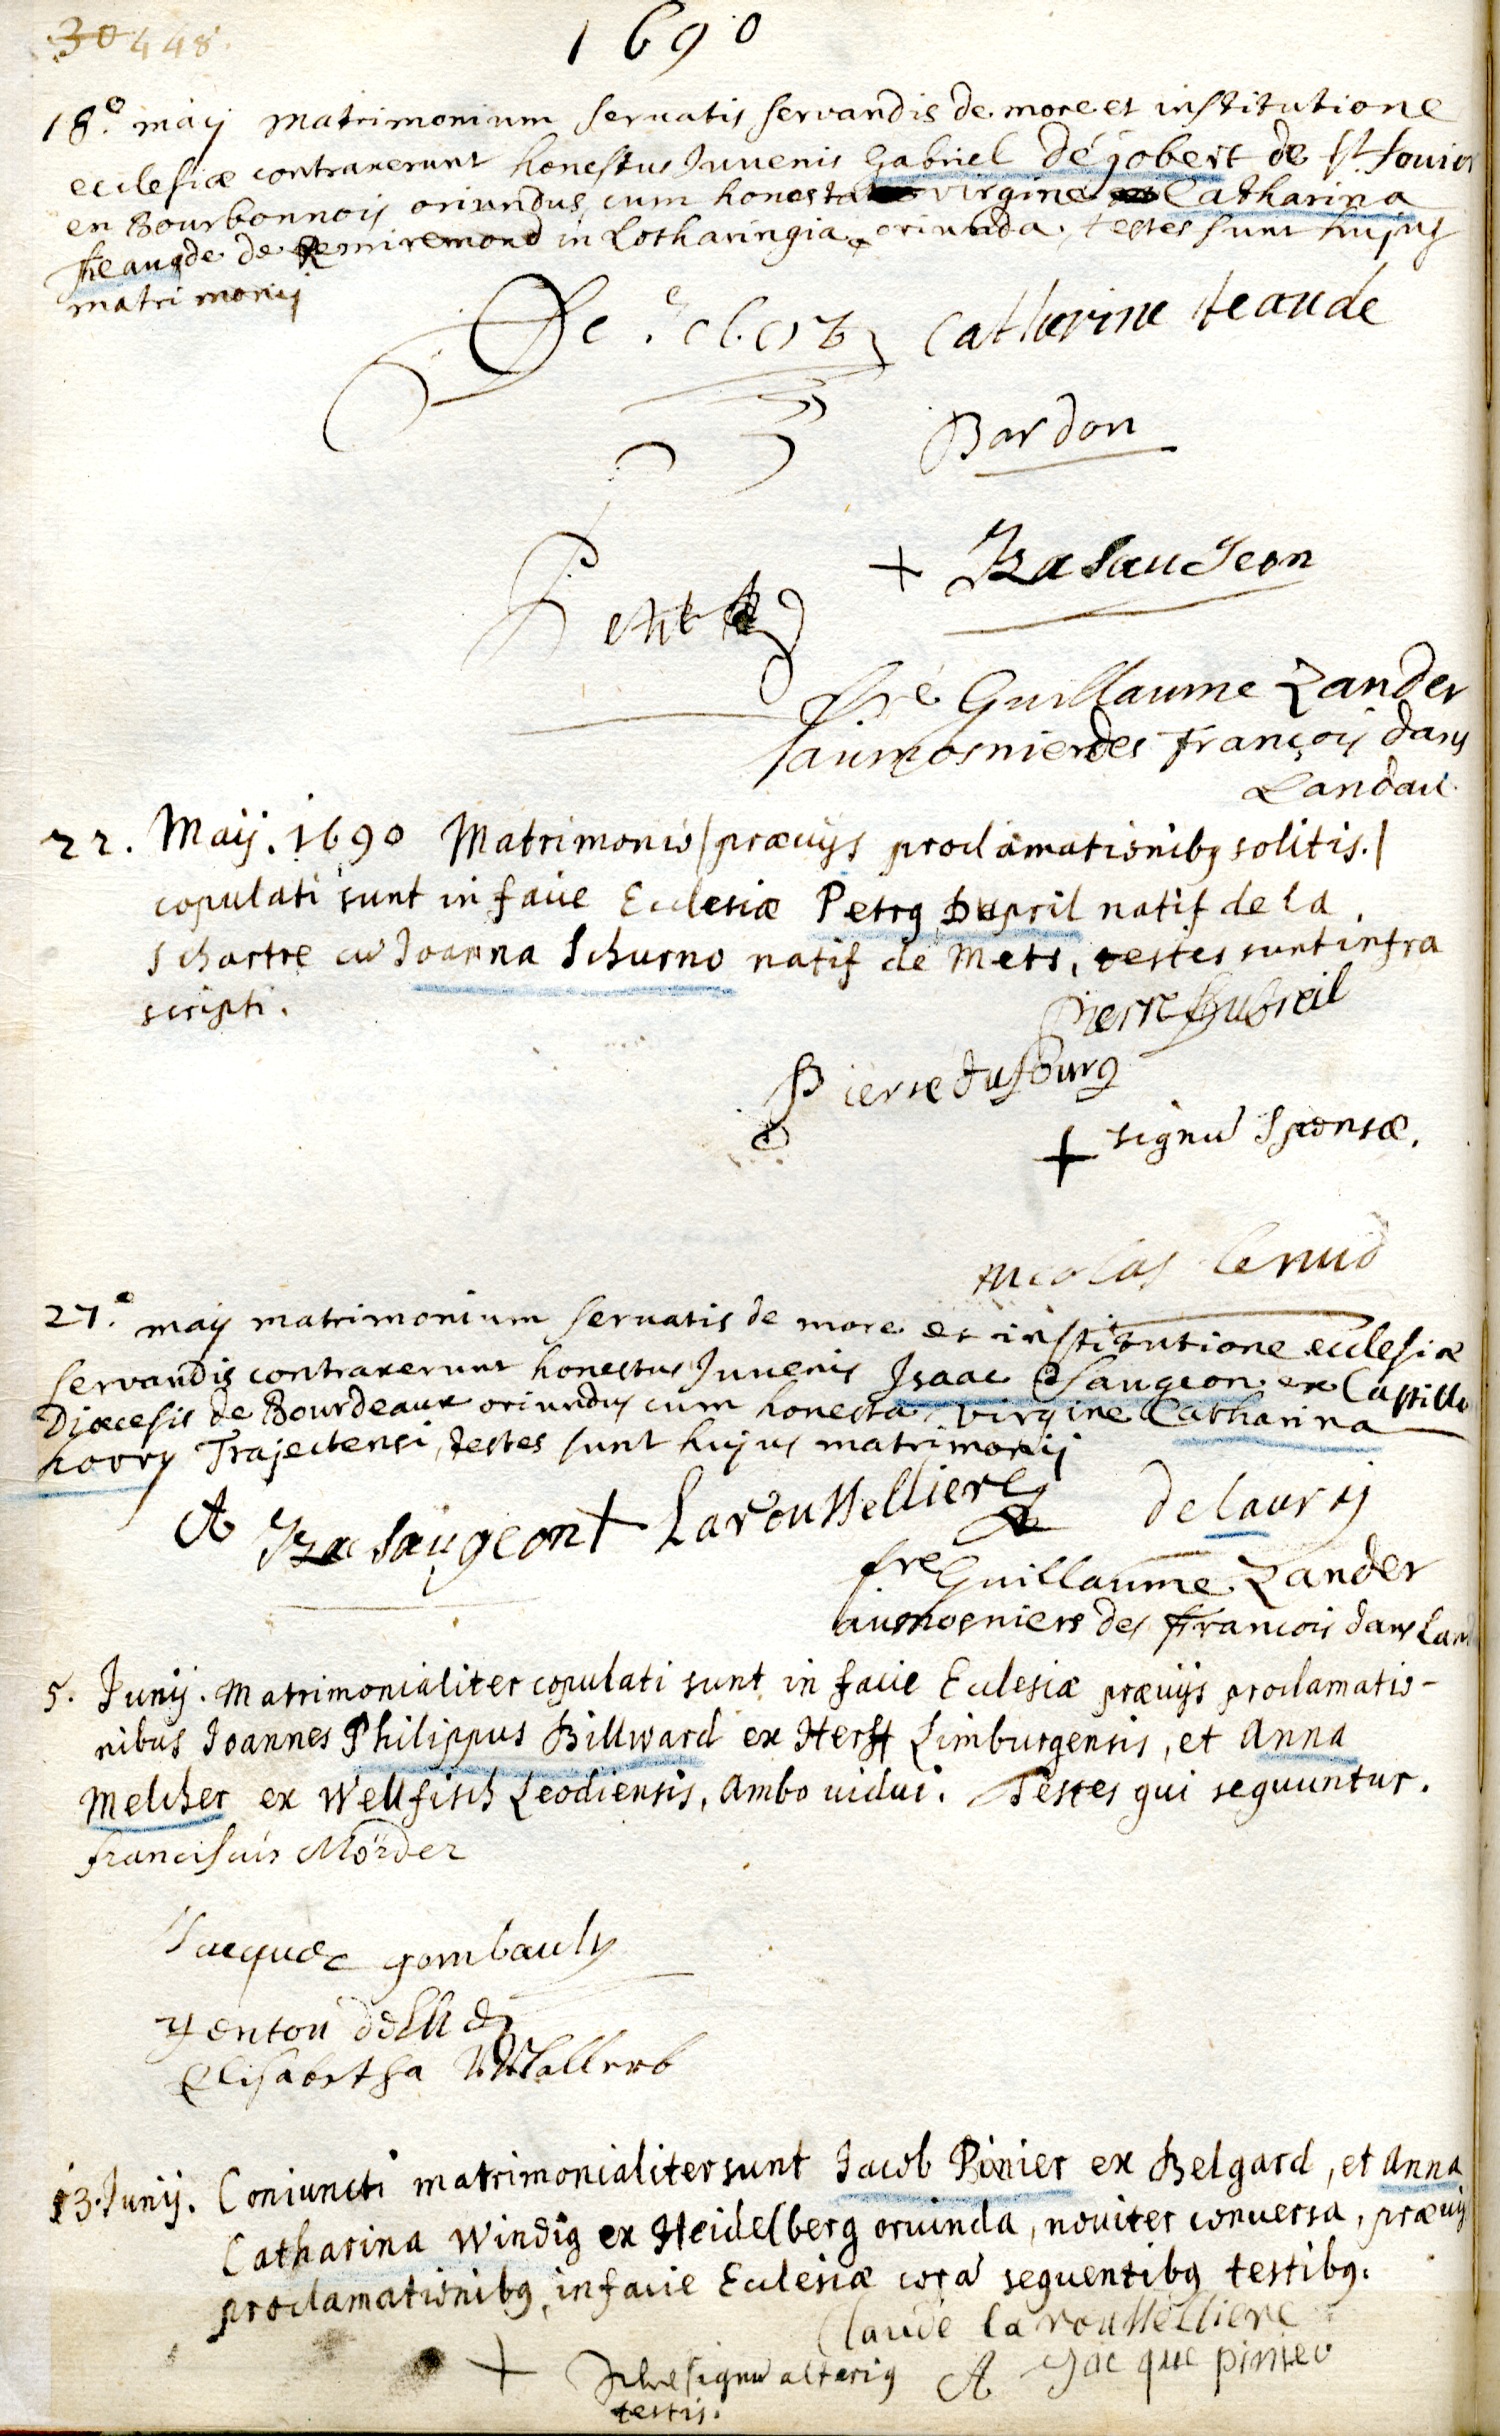 30 448.
1690
18.o maij matrimonium servatis servandis de more et institutione
ecclesiæ contraxerunt honestus Juvenis Gabriel déjobert de
en Bourbonnois oriundus cum honesta virgine Catharina
theaude de Remiremond in Lotharingia oriunda, testes sunt hujus
matrimonij
Catherine teaude
Bardon
+ Isa Saugeon
Petit
fre Guillaume Zander
aumosnier des françois dans
Landau.
22. Maij. 1690 Matrimonio / prævijs proclamationibꝫ solitis. /
copulati sunt in facie Ecclesiæ Petrꝫ Dupril natif de la
Schartre cū Joanna Schurno natif de Mets, testes sunt infra
scripti.
Pierre Dubreil
Pierre dufourg
+ signū Sponsæ.
nicolas lenud
27.e maij matrimonium servatis de more et institutione ecclesiæ
servandis contraxerunt honestus Juvenis Isaac Saugeon ex Castillo
Diœcesis de Bourdeaux oriundus cum honesta virgine Catharina
horry Trajectensi, testes sunt hujus matrimonij
A Isa Saugeon + Larousselliere delaurij
fre Guillaume Zander
aumosniers des francois dans Land
5. Junij. Matrimonialiter copulati sunt in facie Ecclesiæ prævijs proclamatio-
nibus Joannes Philippus Billward ex Herff Limburgensis, et Anna
Melcher ex Wellfisch Leodiensis, Ambo vidui. Testes qui sequuntur.
Franciscus Mörder
Jacques gombault
Elisabetha
13. Junij. Coniuncti matrimonialiter sunt Jacob Pinier ex Belgard, et Anna
Catharina Windig ex Heidelberg oriunda, noviter conversa, prævijs
proclamationibꝫ, in facie Ecclesiæ corā sequentibꝫ testibꝫ.
Claude la rousselliere
+ signū alteriꝫ A Jacque pinieo
testis.